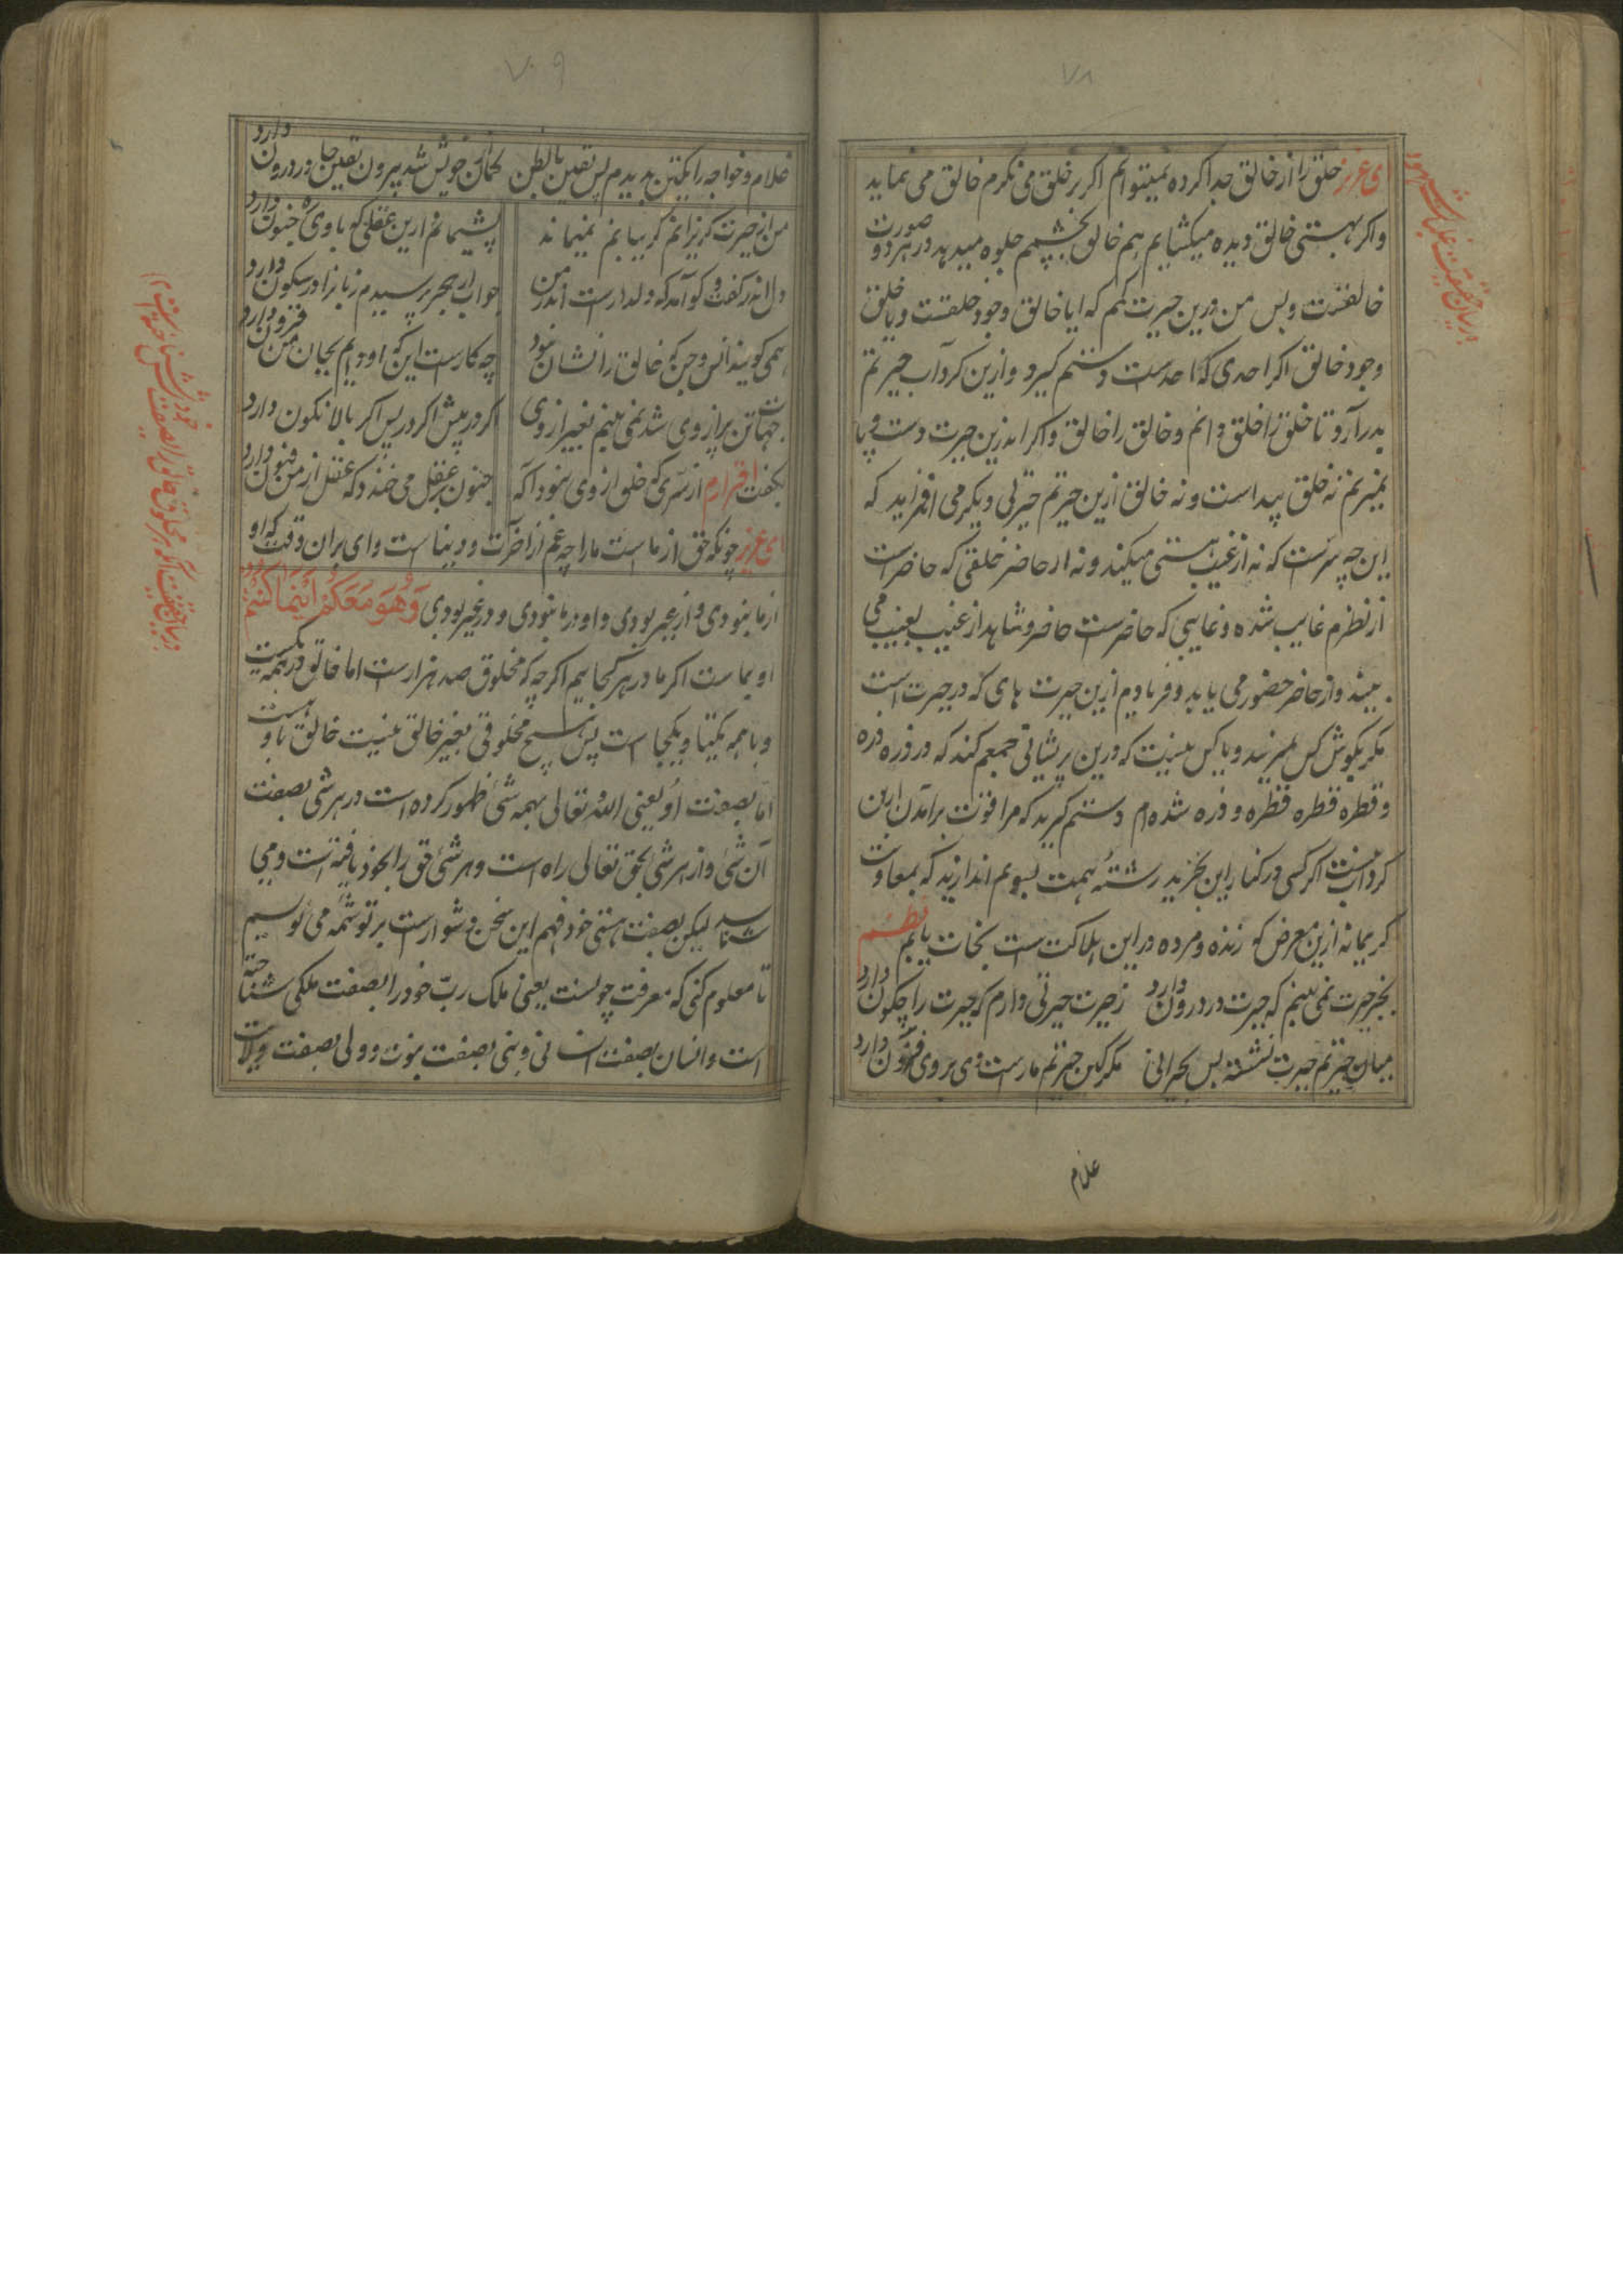 ۷۸
ای عزیز خلق را از خالق جدا کرده نمیتوانم اکر بر خلق می نکرم خالق می نماید
واکر بهستی خالق دیده میکشایم هم خالق بچشمم جلوه میدهد در هر دو صورت
خالقست وبس من درین حیرت کمم که ایا خالق وجود خلقست ویا خلق
وجود خالق اکر احدی که احدست دستم کیرد وازین کرداب حیرتم
بدر آرد تا خلق را خلق دانم و خالق را خالق واکر اندرین حیرت دست و پا
نمیزنم نه خلق پیداست ونه خالق ازین حیرتم حیرتی دیکر می افزاید که
این چه سرّست که نه از غیب هستی میکند ونه از حاضر خلقی که حاضر است
از نظرم غایب شده وغایبی که حاضرست حاضر وشاهد از غیب بغیب می
بیند واز حاضر حضور می یابد وفریادم ازین حیرت های که در حیرت است
مکر بکوش کس نمیرسد ویا کس نیست که درین پریشانی جمعم کند که در ذره ذره
و قطره قطره قطره و ذره شده ام دستم کیرید که مرا قوت برآمدن ازین
کرداب نیست اکر کسی در کنار این بحرید رشتهٔ همت بسویم اندازید که بمعاونت
کریمانه ازین معرض که زنده ومرده در این هلاکت است نجات یابم نظم
بجز حیرت نمی بینم که حیرت در درون دارد   ز حیرت حیرتی دارم که حیرت را چکون دارد
میان حیرتم حیرت نشسته بس بحیرانی   مکر کین حیرتم مارست وی بر وی فسون دارد
غلام
۷۰۹
غلام وخواجه را یکتن بدیدم پس یقین باطن   کمان خویش شد بیرون یقین جا در درون دارد
من از حیرت کریزانم کریبانم نمیماند   پشیمانم ازین عقلی که با وی ره جنون دارد
دل اندر کفت و کو آمد که دلدارست اندر من   جواب از بحر پرسیدم زبانرا در سکون دارد
همی کویند انس وجن که خالق را نشان نبود   چه کارست این که او دایم بجان من فزون دارد
جهاتن پر از وی شد نمی بینم بغیر از وی   اکر در پیش اکر در پس اکر بالا نکون دارد
بکفت اقرارم از سرّی که خلق از وی نبود آکه   جنون بر عقل می خندد که عقل از من فنون دارد
ای عزیز چونکه حق از ماست مارا چه غم از آخرت ودنیاست وای بران وقت که او
از ما نبودی واز غیر بودی واو در ما نبودی ودر غیر بودی وَهُوَ مَعَكُمْ أَيْنَمَا كُنْتُمْ
او بماست اکر ما در هر کجاییم اکرچه که مخلوق صد هزارست اما خالق در همه یکیست
وبا همه یکتا ویکجاست پس هیچ مخلوقی بغیر خالق نیست خالق با وهست
اما بصفت او یعنی الله تعالی بهمه شیٔ ظهور کرده است در هر شیٔ بصفت
آن شیٔ واز هر شیٔ بحق تعالی راه است وهر شیٔ حق را بخود یافته است ومی
شناسد لیکن بصفت هستی خود فهم این سخن دشوارست بر تو شمه می نویسیم
تا معلوم کنی که معرفت چونست یعنی ملک ربّ خود را بصفت ملکی شناخته
است وانسان بصفت انسانی ونبی بصفت نبوت وولی بصفت ولایت